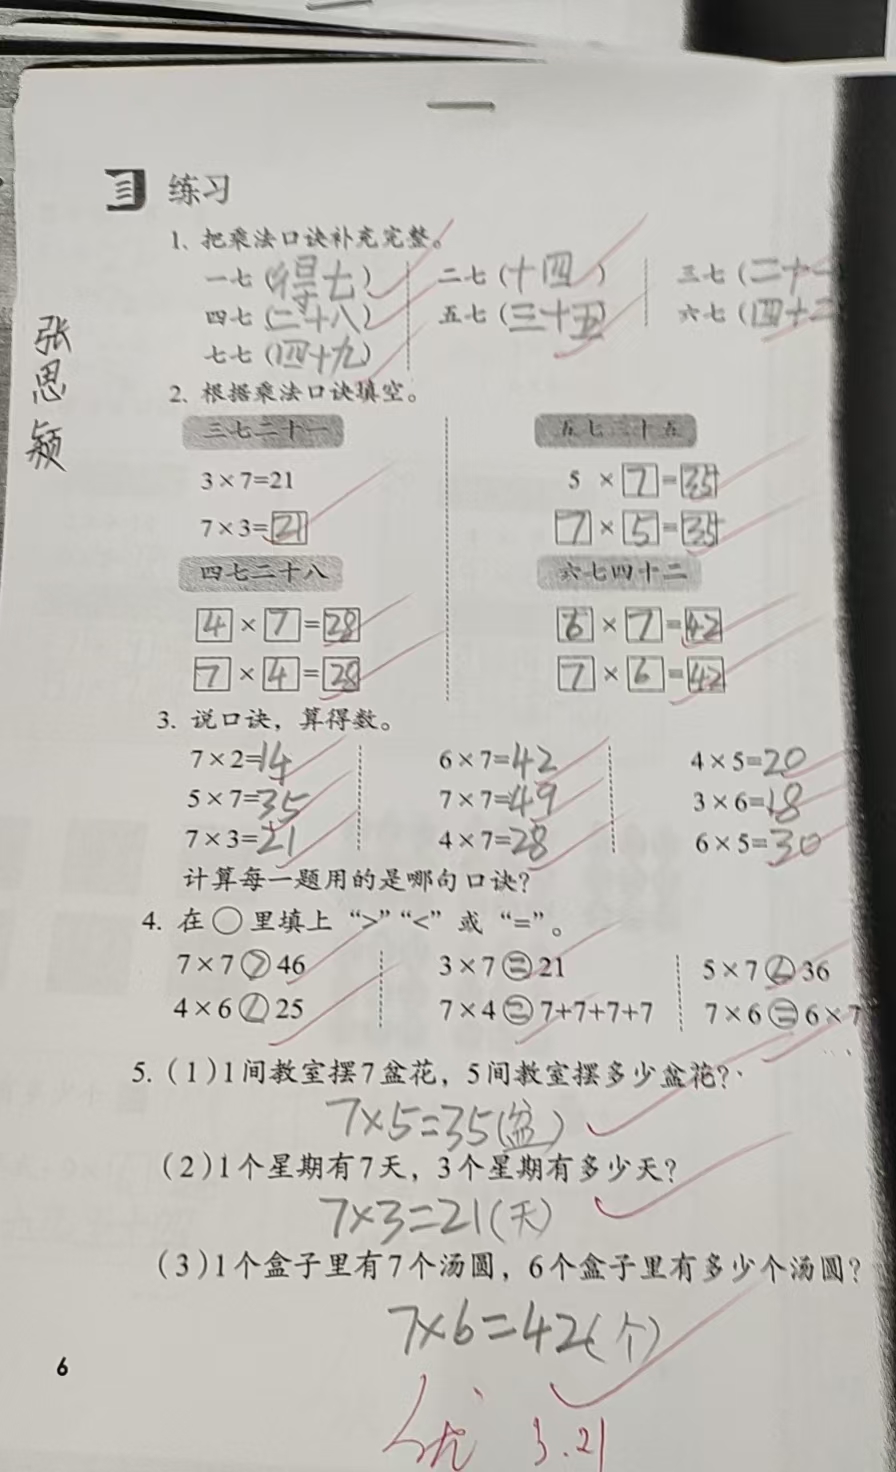 三 练习
1、把乘法口诀补充完整。
一七（得七） 二七（十四） 三七（二十一
四七（二十八） 五七（三十五） 六七（四十二
七七（四十九）
2、根据乘法口诀填空。
三七二十一 五七三十五
3×7=21 5×7=35
7×3=21 7×5=35
四七二十八 六七四十二
4×7=28 6×7=42
7×4=28 7×6=42
3. 说口诀，算得数。
7×2=14 6×7=42 4×5=20
5×7=35 7×7=49 3×6=18
7×3=21 4×7=28 6×5=30
计算每一题用的是哪句口诀？
4. 在○里填上“>”“<”或“=”。
7×7>46 3×7=21 5×7<36
4×6<25 7×4=7+7+7+7 7×6=6×7
5.（1）1间教室摆7盆花，5间教室摆多少盆花？
7×5=35(盆)
（2）1个星期有7天，3个星期有多少天？
7×3=21(天)
（3）1个盒子里有7个汤圆，6个盒子里有多少个汤圆？
7×6=42(个)
优 3.21
6
张思颖